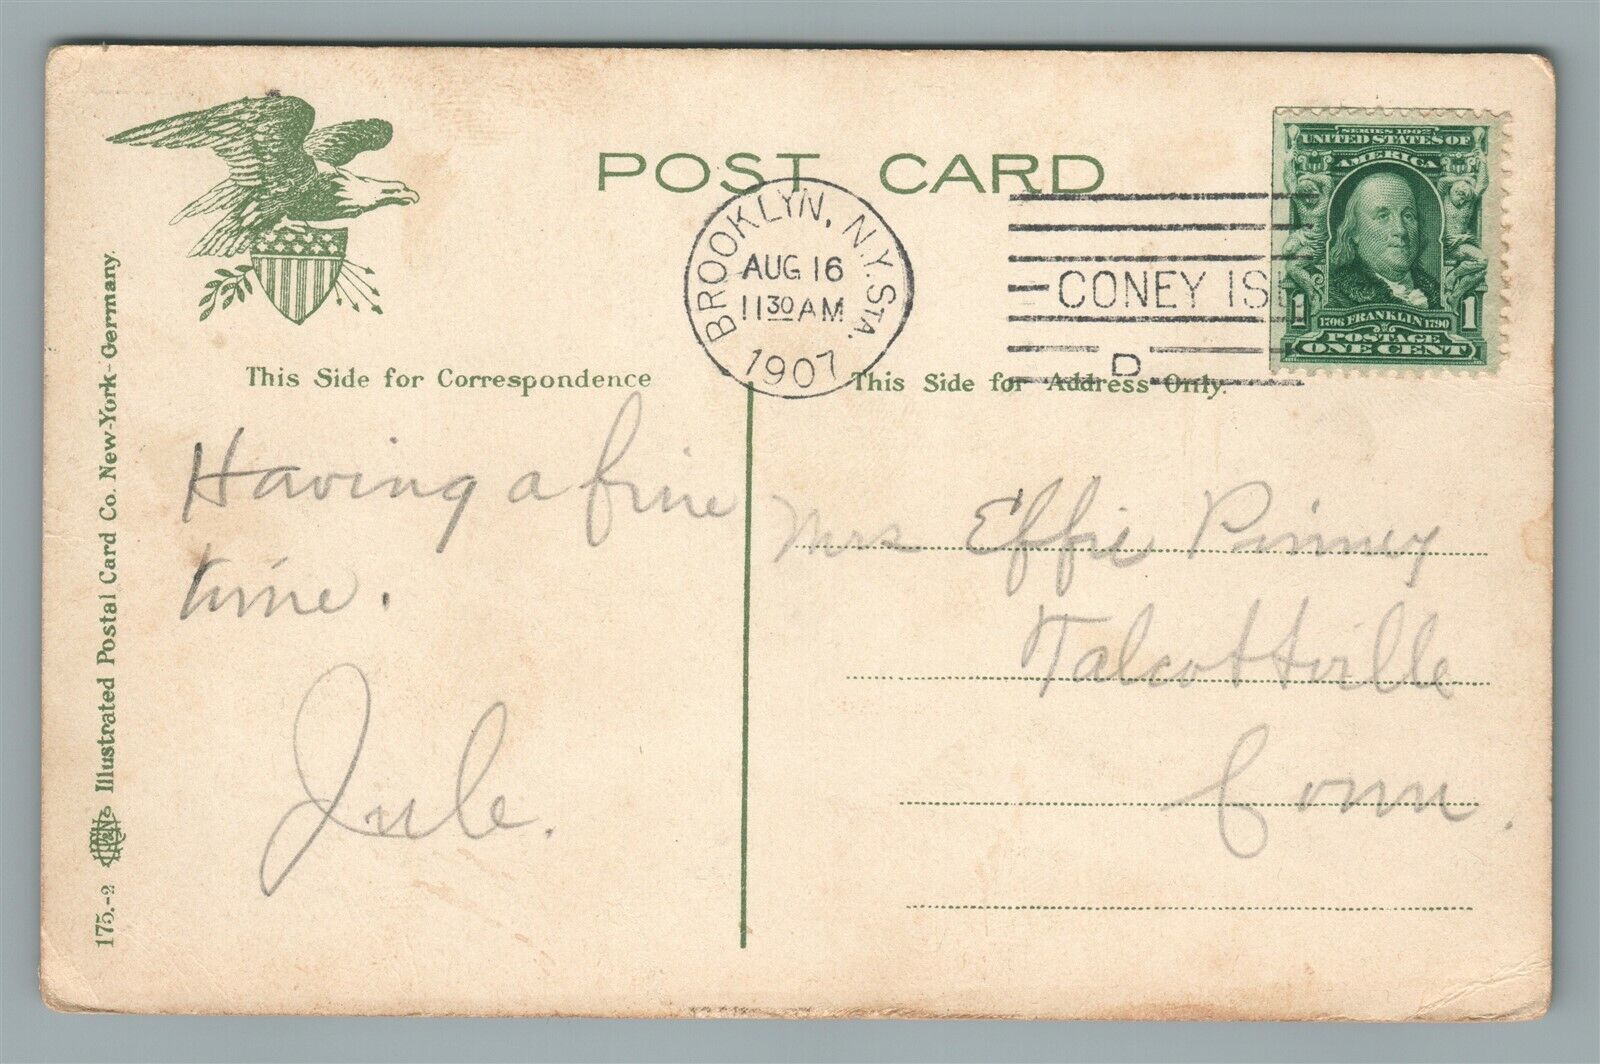 POST CARD
BROOKLYN, N.Y. STA.
AUG 16
11 30 AM
1907
CONEY IS
D
SERIES 1902
UNITED STATES OF
AMERICA
1706 FRANKLIN 1790
1 1
POSTAGE
ONE CENT
This Side for Correspondence
This Side for Address Only.
Having a fine
time.
Jule.
Mrs Effie Pinney
Talcottville
Conn.
175.-2 Illustrated Postal Card Co. New-York- Germany.